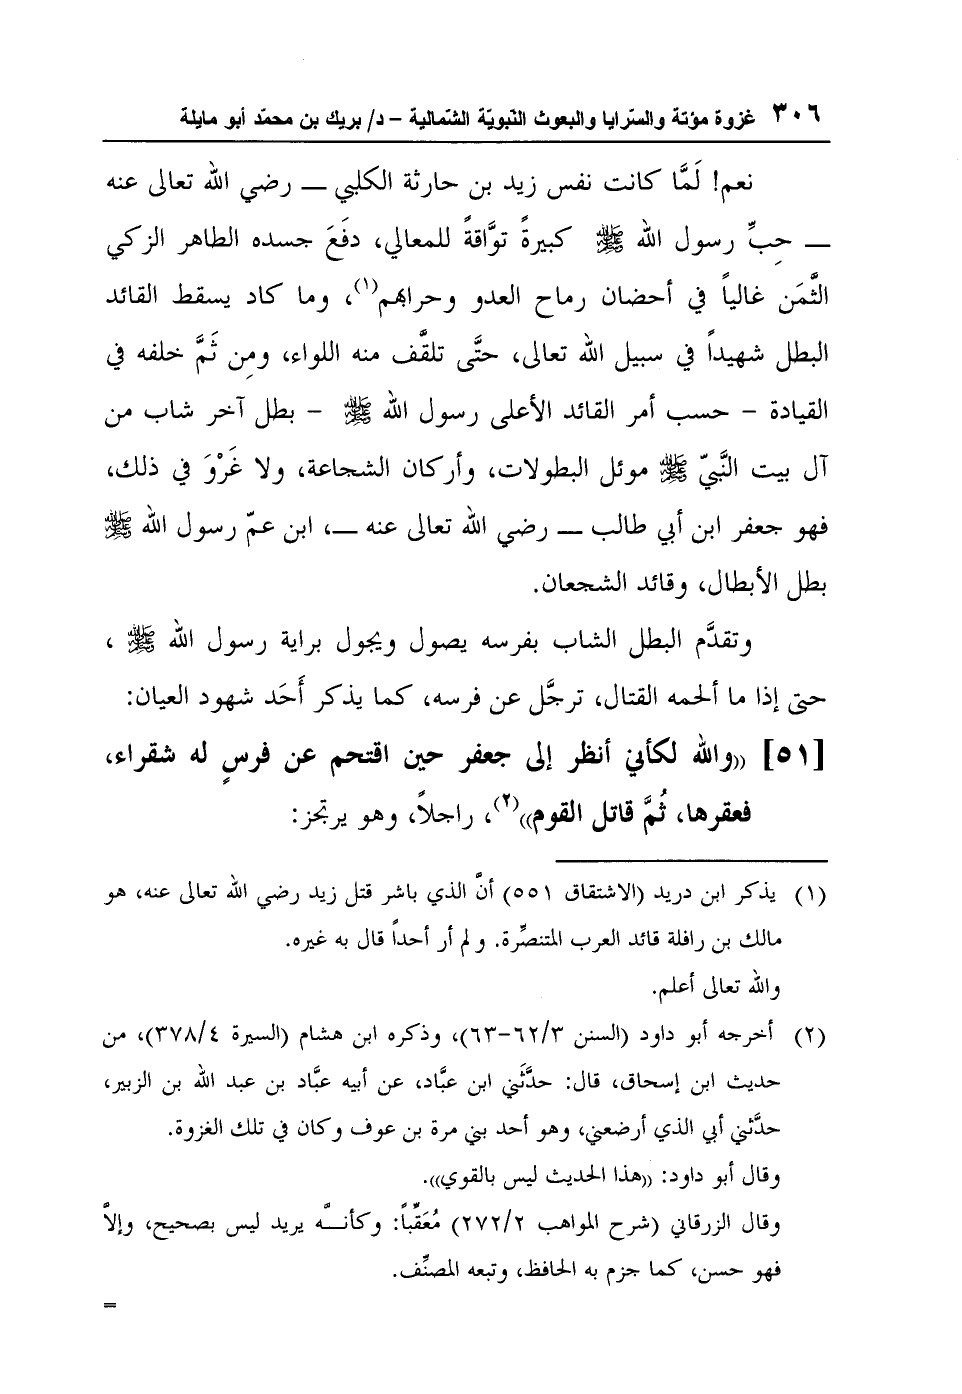 ٣٠٦ غزوة مؤتة والسّرايا والبعوث النّبويّة الشّمالية – د/ بريك بن محمّد أبو مايلة
نعم! لَمَّا كانت نفس زيد بن حارثة الكلبي ــ رضي الله تعالى عنه
ــ حِبِّ رسول الله ﷺ كبيرةً توَّاقةً للمعالي، دفَعَ جسده الطاهر الزكي
الثَّمَن غالياً في أحضان رماح العدو وحرابهم(١)، وما كاد يسقط القائد
البطل شهيداً في سبيل الله تعالى، حتَّى تلقَّف منه اللواء، ومِن ثَمَّ خلفه في
القيادة - حسب أمر القائد الأعلى رسول الله ﷺ - بطل آخر شاب من
آل بيت النَّبيّ ﷺ موئل البطولات، وأركان الشجاعة، ولا غَرْوَ في ذلك،
فهو جعفر ابن أبي طالب ــ رضي الله تعالى عنه ــ، ابن عمّ رسول الله ﷺ
بطل الأبطال، وقائد الشجعان.
وتقدَّم البطل الشاب بفرسه يصول ويجول براية رسول الله ﷺ ،
حتى إذا ما ألحمه القتال، ترجَّل عن فرسه، كما يذكر أَحَد شهود العيان:
[٥١] ((والله لكأني أنظر إلى جعفر حين اقتحم عن فرسٍ له شقراء،
فعقرها، ثُمَّ قاتل القوم))(٢)، راجلاً، وهو يرتجز:
(١) يذكر ابن دريد (الاشتقاق ٥٥١) أنَّ الذي باشر قتل زيد رضي الله تعالى عنه، هو
مالك بن رافلة قائد العرب المتنصِّرة. ولم أر أحداً قال به غيره.
والله تعالى أعلم.
(٢) أخرجه أبو داود (السنن ٦٢/٣-٦٣)، وذكره ابن هشام (السيرة ٣٧٨/٤)، من
حديث ابن إسحاق، قال: حدَّثَني ابن عبَّاد، عن أبيه عبَّاد بن عبد الله بن الزبير،
حدَّثني أبي الذي أرضعني، وهو أحد بني مرة بن عوف وكان في تلك الغزوة.
وقال أبو داود: ((هذا الحديث ليس بالقوي)).
وقال الزرقاني (شرح المواهب ٢٧٢/٢) مُعَقِّباً: وكأنَّه يريد ليس بصحيح، وإلاَّ
فهو حسن، كما جزم به الحافظ، وتبعه المصنِّف.
=